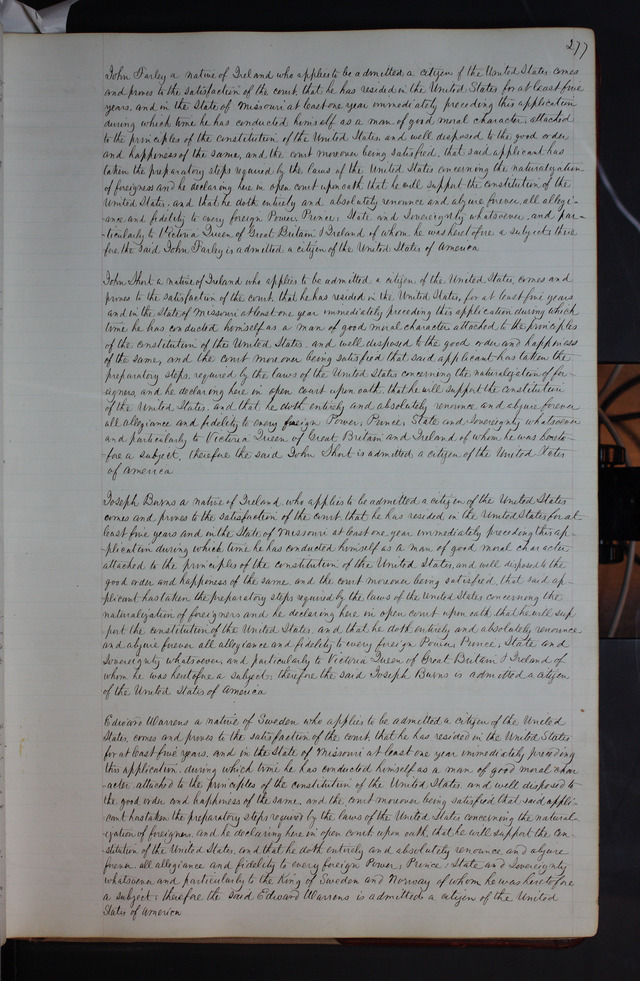 277
John Farley a native of Ireland who applies to be admitted a citizen of the United States comes
and proves to the satisfaction of the court, that he has resided in the United States for at least five
years, and in the State of Missouri at least one year immediately preceding this application
during which time he has conducted himself as a man of good moral character, attached
to the principles of the constitution of the United States, and well disposed to the good order
and happiness of the same, and the court moreover being satisfied, that said applicant has
taken the preparatory steps required by the laws of the United States concerning the naturalization
of foreigners and he declaring here in open court upon oath that he will support the constitution of the
United States, and that he doth entirely and absolutely renounce and abjure forever all allegi-
ance and fidelity to every foreign Power, Prince, State and Sovereignty whatsoever, and par-
ticularly to Victoria Queen of Great Britain & Ireland of whom he was heretofore a subject, there
fore the said John Farley is admitted a citizen of the United States of America
John Short a native of Ireland who applies to be admitted a citizen of the United States, comes and
proves to the satisfaction of the court, that he has resided in the United States, for at least five years
and in the State of Missouri at least one year immediately preceding this application during which
time he has conducted himself as a man of good moral character attached to the principles
of the constitution of the United States, and well disposed to the good order and happiness
of the same, and the court moreover being satisfied that said applicant has taken the
preparatory steps, required by the laws of the United States concerning the naturalization of for-
eigners, and he declaring here in open court upon oath, that he will support the constitution
of the United States, and that he doth entirely and absolutely renounce and abjure forever
all allegiance and fidelity to every foreign Power, Prince, State and Sovereignty whatsoever
and particularly to Victoria Queen of Great Britain and Ireland of whom he was hereto-
fore a subject, therefore the said John Short is admitted a citizen of the United States
of America
Joseph Burns a native of Ireland, who applies to be admitted a citizen of the United States
comes and proves to the satisfaction of the court, that he has resided in the United States for at
least five years and in the State of Missouri at least one year immediately preceding this ap-
plication during which time he has conducted himself as a man of good moral character
attached to the principles of the constitution of the United States, and well disposed to the
good order and happiness of the same and the court moreover being satisfied, that said ap-
plicant has taken the preparatory steps required by the laws of the United States concerning the
naturalization of foreigners and he declaring here in open court upon oath that he will sup
port the constitution of the United States, and that he doth entirely and absolutely renounce
and abjure forever all allegiance and fidelity to every foreign Power, Prince, State and
Sovereignty whatsoever, and particularly to Victoria Queen of Great Britain & Ireland of
whom he was heretofore a subject, therefore the said Joseph Burns is admitted a citizen
of the United States of America
Edward Warrens a native of Sweden who applies to be admitted a citizen of the United
States, comes and proves to the satisfaction of the court, that he has resided in the United States
for at least five years, and in the State of Missouri at least one year immediately preceding
this application, during which time he has conducted himself as a man of good moral char
acter, attached to the principles of the constitution of the United States, and well disposed to
the good order and happiness of the same, and the court moreover being satisfied that said appli-
cant has taken the preparatory steps required by the laws of the United States concerning the natural-
ization of foreigners, and he declaring here in open court upon oath, that he will support the con-
stitution of the United States, and that he doth entirely and absolutely renounce and abjure
forever all allegiance and fidelity to every foreign Power, Prince, State and Sovereignty
whatsoever and particularly to the King of Sweden and Norway of whom he was heretofore
a subject, therefore the said Edward Warrens is admitted a citizen of the United
States of America